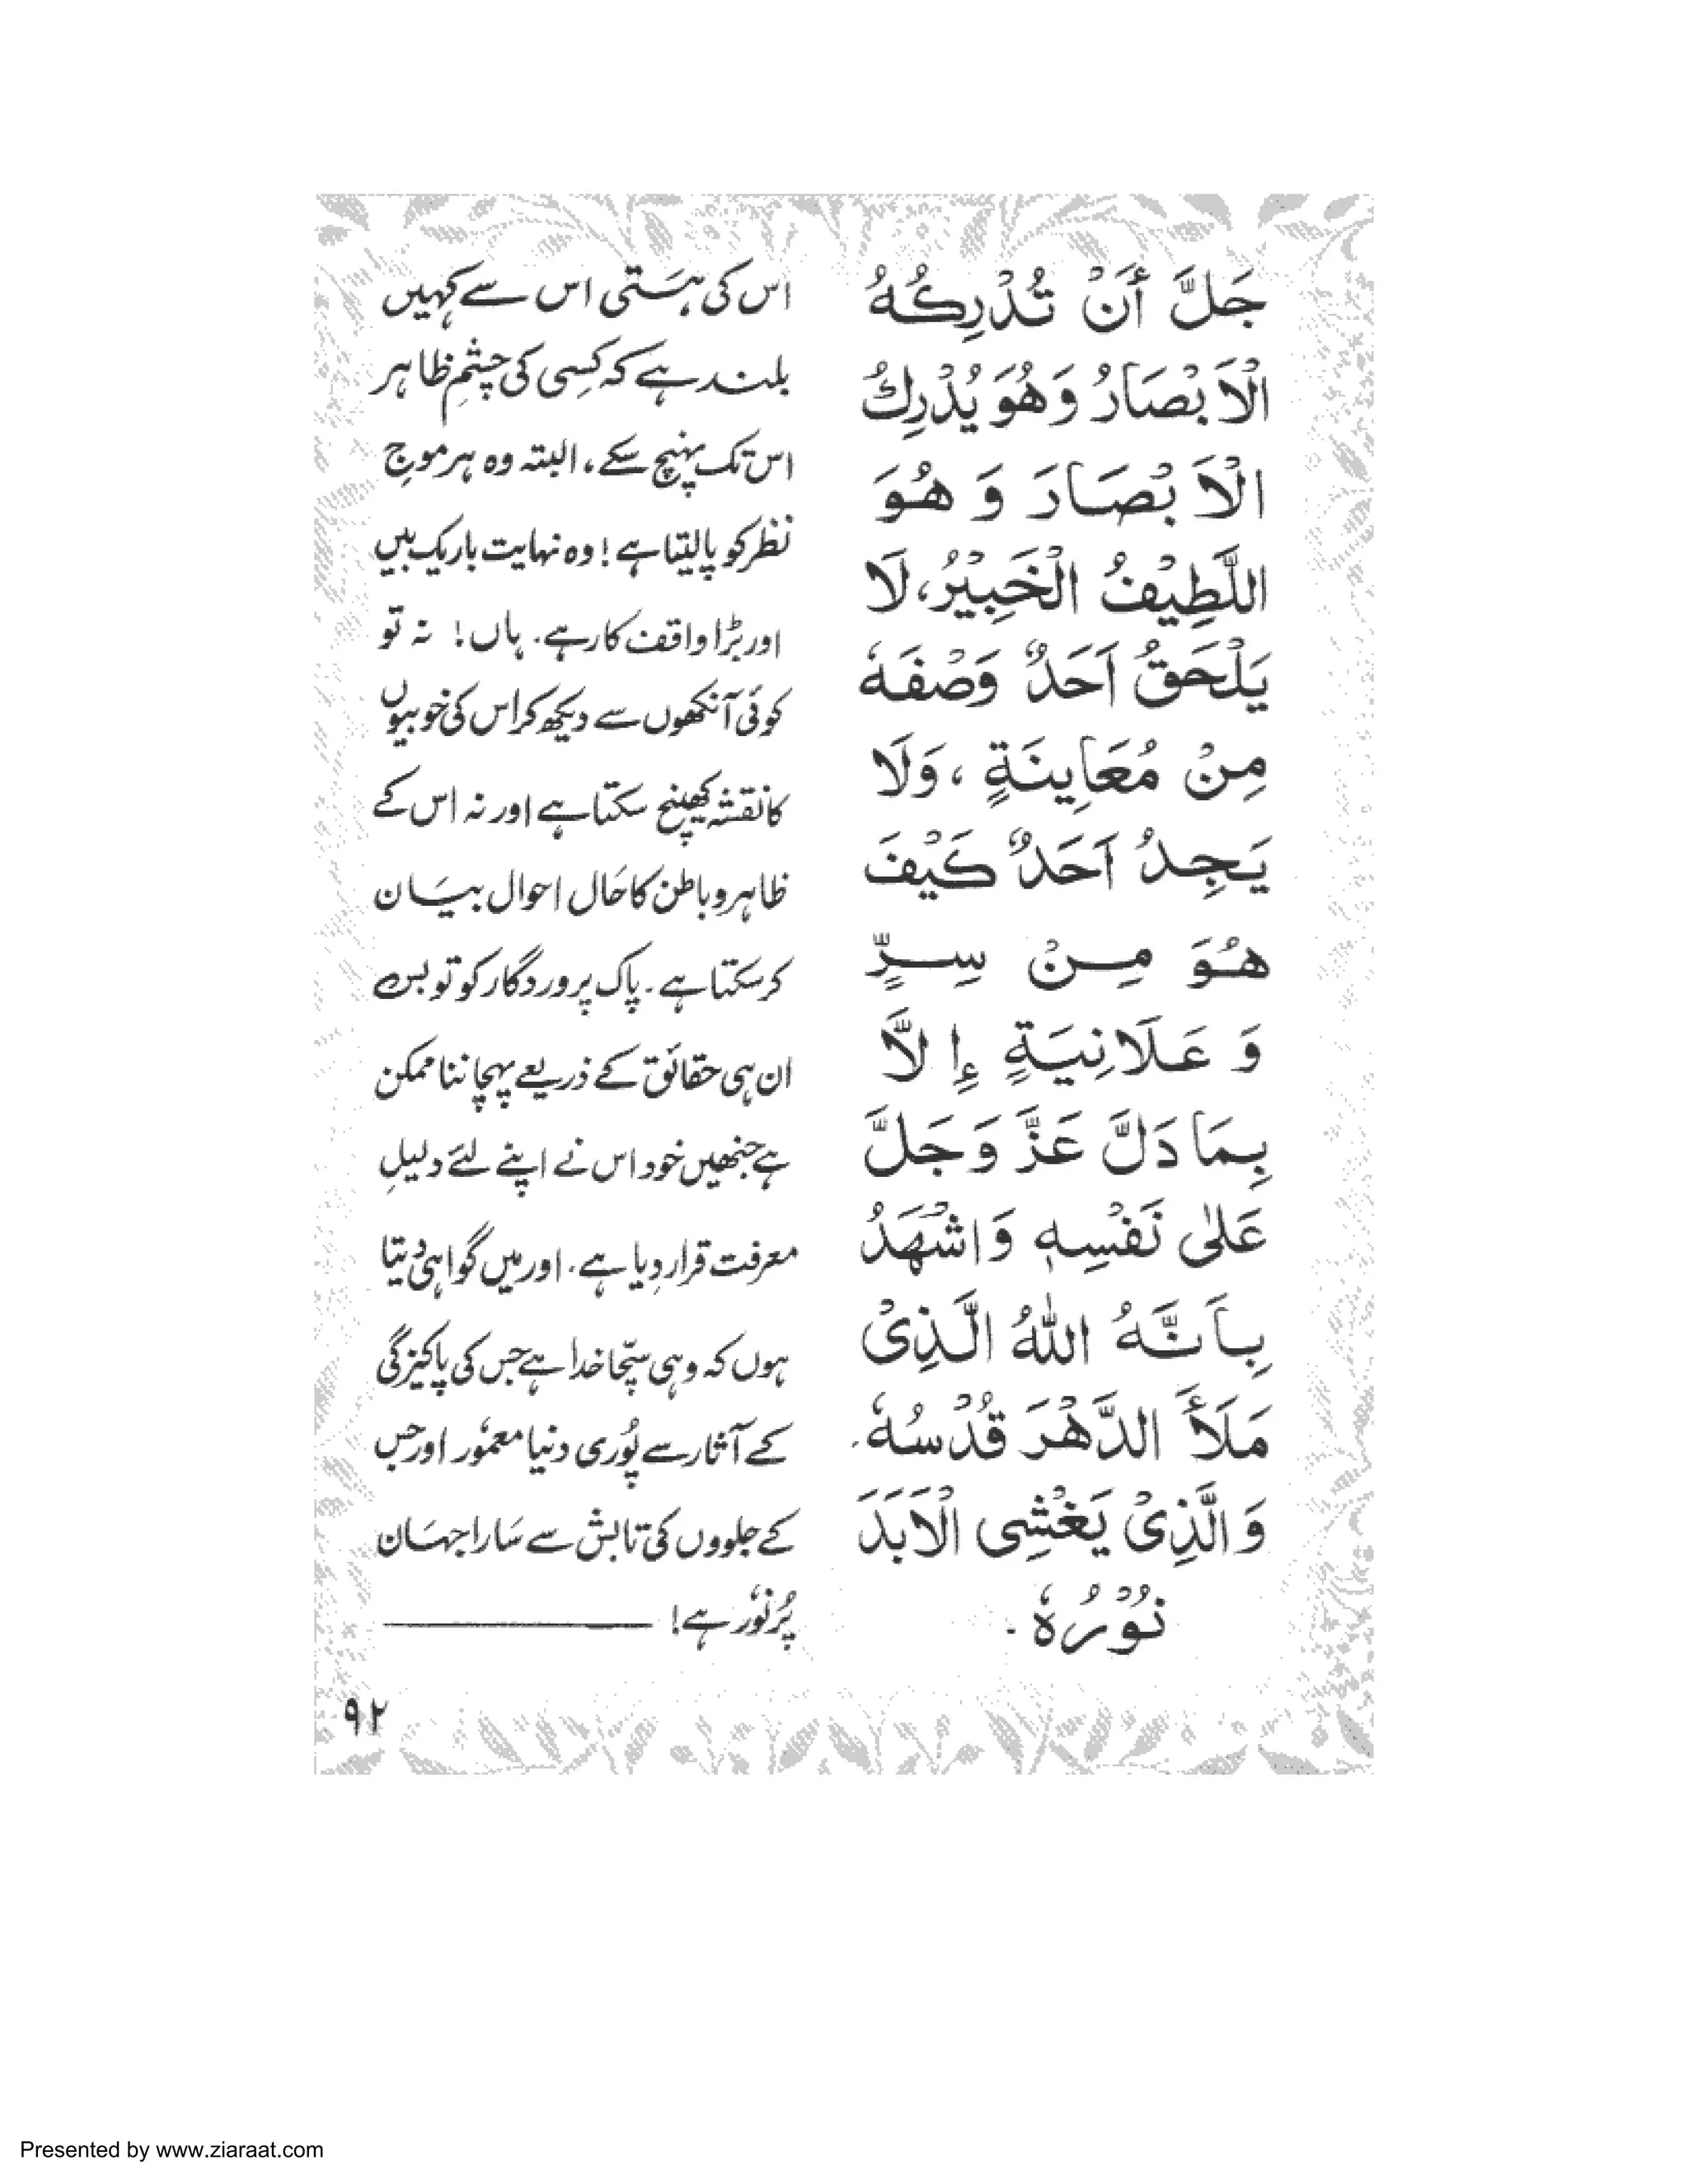 جَلَّ أَنْ تُدْرِكُهُ
الْاَبْصَارُ وَهُوَ يُدْرِكُ
الْاَبْصَارَ وَ هُوَ
اللَّطِيْفُ الْخَبِيْرُ، لَا
يَلْحَقُ اَحَدٌ وَصْفَهٗ
مِنْ مُعَايِنَةٍ، وَلَا
يَجِدُ اَحَدٌ كَيْفَ
هُوَ مِنْ سِرٍّ
وَ عَلَانِيَةٍ إِلَّا
بِمَا دَلَّ عَزَّ وَجَلَّ
عَلٰى نَفْسِهٖ وَاشْهَدُ
بِاَنَّهُ اللهُ الَّذِىْ
مَلَأَ الدَّهْرَ قُدْسُهٗ.
وَالَّذِىْ يَغْشِى الْاَبَدَ
نُوْرُهٗ۔
اس کی ہستی اس سے کہیں
بلند ہے کہ کسِی کی چشمِ ظاہر
اس تک پہنچ سکے، البتہ وہ ہر موجِ
نظر کو پالیتا ہے! وہ نہایت باریک بیں
اور بڑا واقف کار ہے۔ ہاں! نہ تو
کوئی آنکھوں سے دیکھ کر اس کی خوبیوں
کا نقشہ کھینچ سکتا ہے اور نہ اس کے
ظاہر و باطن کا حَال احوال بیَان
کر سکتا ہے۔ پاک پروردگار کو تو بس
ان ہی حقائق کے ذریعے پہچاننا ممکن
ہے جنھیں خود اس نے اپنے لئے دلیلِ
معرفت قرار دِیا ہے۔ اور میں گواہی دیتا
ہوں کہ وہی سچّا خدا ہے جس کی پاکیزگی
کے آثار سے پُوری دنیا معمُور اور جس
کے جلووں کی تابش سے سَارا جہَان
پُرنُور ہے!
۹۲
Presented by www.ziaraat.com